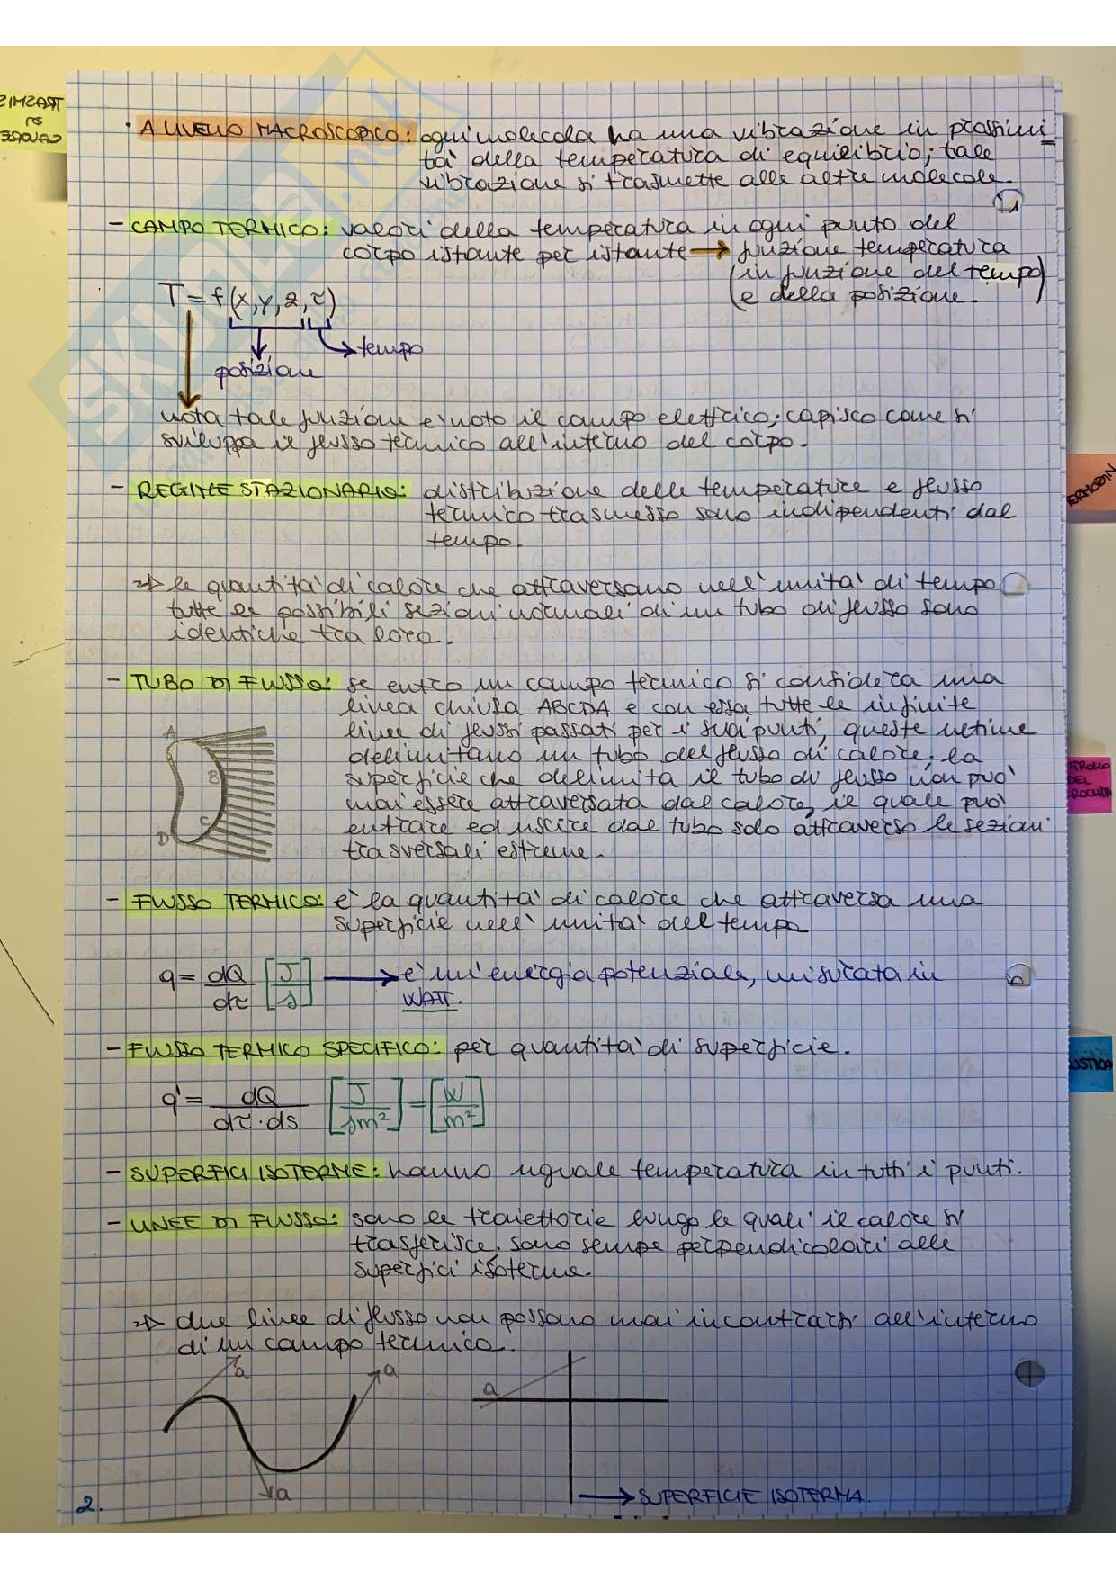 • A LIVELLO MACROSCOPICO: ogni molecola ha una vibrazione in prossimi
tà della temperatura di equilibrio; tale
vibrazione si trasmette alle altre molecole.
- CAMPO TERMICO: valori della temperatura in ogni punto del
corpo istante per istante → funzione temperatura
(in funzione del tempo
e della posizione.)
T = f(x,y,z,τ)
→ tempo
posizione
nota tale funzione è noto il campo elettrico; capisco come si
sviluppa il flusso termico all'interno del corpo.
- REGIME STAZIONARIO: distribuzione delle temperature e flusso
termico trasmesso sono indipendenti dal
tempo.
⇒ le quantità di calore che attraversano nell'unità di tempo
tutte le possibili sezioni normali di un tubo di flusso sono
identiche tra loro.
- TUBO DI FLUSSO: se entro un campo termico si considera una
linea chiusa ABCDA e con essa tutte le infinite
linee di flussi passati per i suoi punti, queste ultime
delimitano un tubo del flusso di calore; la
superficie che delimita il tubo di flusso non può
mai essere attraversata dal calore, il quale può
entrare ed uscire dal tubo solo attraverso le sezioni
trasversali estreme.
A
B
C
D
- FLUSSO TERMICO: è la quantità di calore che attraversa una
superficie nell'unità del tempo
q = dQ/dτ [J/s] → è un'energia potenziale, misurata in
WATT.
- FLUSSO TERMICO SPECIFICO: per quantità di superficie.
q' = dQ/dτ·ds [J/sm²] = [W/m²]
- SUPERFICI ISOTERME: hanno uguale temperatura in tutti i punti.
- LINEE DI FLUSSO: sono le traiettorie lungo le quali il calore si
trasferisce, sono sempre perpendicolari alle
superfici isoterme.
⇒ due linee di flusso non possono mai incontrarsi all'interno
di un campo termico.
a
a
a
a
→ SUPERFICIE ISOTERMA.
2.